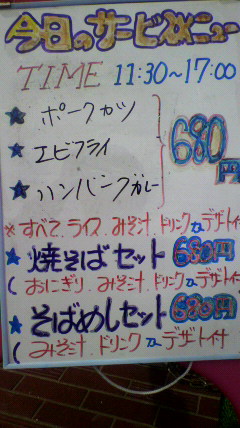 今日のサービスメニュー
TIME 11:30~17:00
★ ポークカツ
★ エビフライ
★ ハンバーグカレー
680円
※すべて、ライス、みそ汁、ドリンク、デザート付
★ 焼そばセット 680円
(おにぎり、みそ汁、ドリンク、デザート付
★ そばめしセット 680円
(みそ汁、ドリンク、デザート付